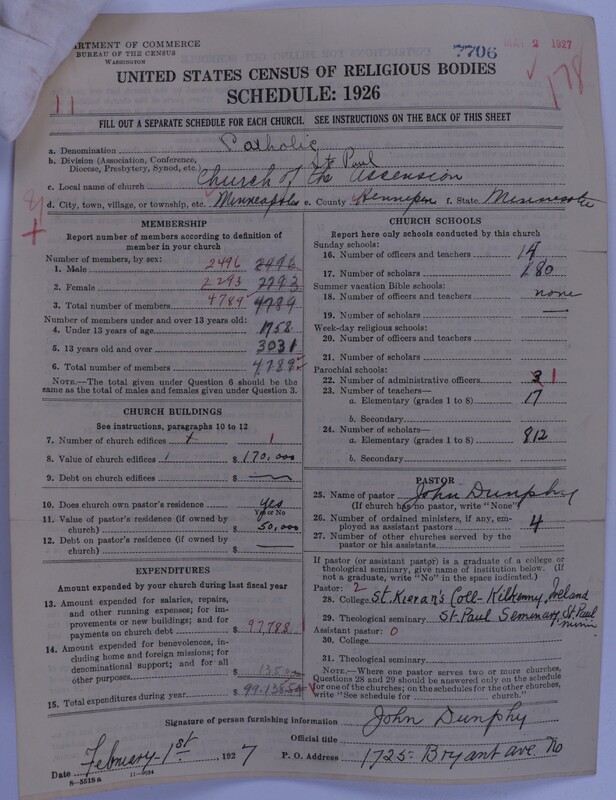 ARTMENT OF COMMERCE
BUREAU OF THE CENSUS
WASHINGTON
7706
2 1927
178
UNITED STATES CENSUS OF RELIGIOUS BODIES
SCHEDULE: 1926
11
FILL OUT A SEPARATE SCHEDULE FOR EACH CHURCH. SEE INSTRUCTIONS ON THE BACK OF THIS SHEET
a. Denomination Catholic
b. Division (Association, Conference, Diocese, Presbytery, Synod, etc.) St. Paul
c. Local name of church Church of the Ascension
d. City, town, village, or township, etc. Minneapolis e. County Hennepin f. State Minnesota
MEMBERSHIP
Report number of members according to definition of
member in your church
Number of members, by sex:
1. Male 2496 2496
2. Female 2293 2293
3. Total number of members 4789 4789
Number of members under and over 13 years old:
4. Under 13 years of age 1758
5. 13 years old and over 3031
6. Total number of members 4789
NOTE.—The total given under Question 6 should be
same as the total of males and females given under Question 3.
CHURCH BUILDINGS
See instructions, paragraphs 10 to 12
7. Number of church edifices 1
8. Value of church edifices $ 170,000
9. Debt on church edifices $ —
10. Does church own pastor's residence yes
Yes or No
11. Value of pastor's residence (if owned by
church) $ 50,000
12. Debt on pastor's residence (if owned by
church) $ —
EXPENDITURES
Amount expended by your church during last fiscal year
13. Amount expended for salaries, repairs,
and other running expenses; for im-
provements or new buildings; and for
payments on church debt $ 97,788
14. Amount expended for benevolences, in-
cluding home and foreign missions; for
denominational support; and for all
other purposes $
15. Total expenditures during year $
CHURCH SCHOOLS
Report here only schools conducted by this church
Sunday schools:
16. Number of officers and teachers 14
17. Number of scholars 180
Summer vacation Bible schools:
18. Number of officers and teachers none
19. Number of scholars —
Week-day religious schools:
20. Number of officers and teachers
21. Number of scholars
Parochial schools:
22. Number of administrative officers 3 1
23. Number of teachers—
a. Elementary (grades 1 to 8) 17
b. Secondary
24. Number of scholars—
a. Elementary (grades 1 to 8) 812
b. Secondary
PASTOR
25. Name of pastor John Dunphy
(If church has no pastor, write "None")
26. Number of ordained ministers, if any, em-
ployed as assistant pastors 4
27. Number of other churches served by the
pastor or his assistants
If pastor (or assistant pastor) is a graduate of a college or
theological seminary, give name of institution below. (If
not a graduate, write "No" in the space indicated.)
Pastor: 2
28. College St. Kieran's Coll- Kilkenny, Ireland
29. Theological seminary St. Paul Seminary, St. Paul
Minn
Assistant pastor: 0
30. College
31. Theological seminary
NOTE.—Where one pastor serves two or more churches,
Questions 28 and 29 should be answered only on the schedule
for one of the churches; on the schedules for the other churches,
write "See schedule for church."
Signature of person furnishing information John Dunphy
Official title
Date February-1st, 1927 P. O. Address 1725- Bryant ave. No
8-5518 a